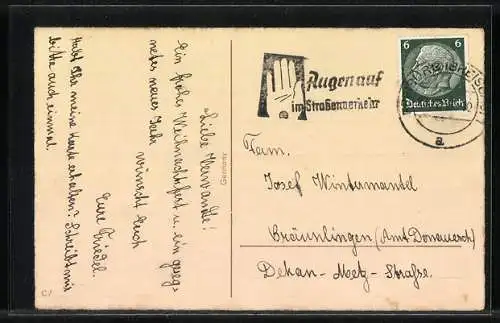 Liebe Verwandte!
Ein frohes Weihnachtsfest u. ein geseg-
netes neues Jahr
wünscht Euch
Eure Friedel.
Habt Ihr meine Karte erhalten? Schreibt mir
bitte auch einmal
6 6
Deutsches Reich
Augen auf
im Straßenverkehr
a
Fam.
Josef Wintermantel
Bräunlingen (Amt Donauesch)
Dekan-Metz-Straße.